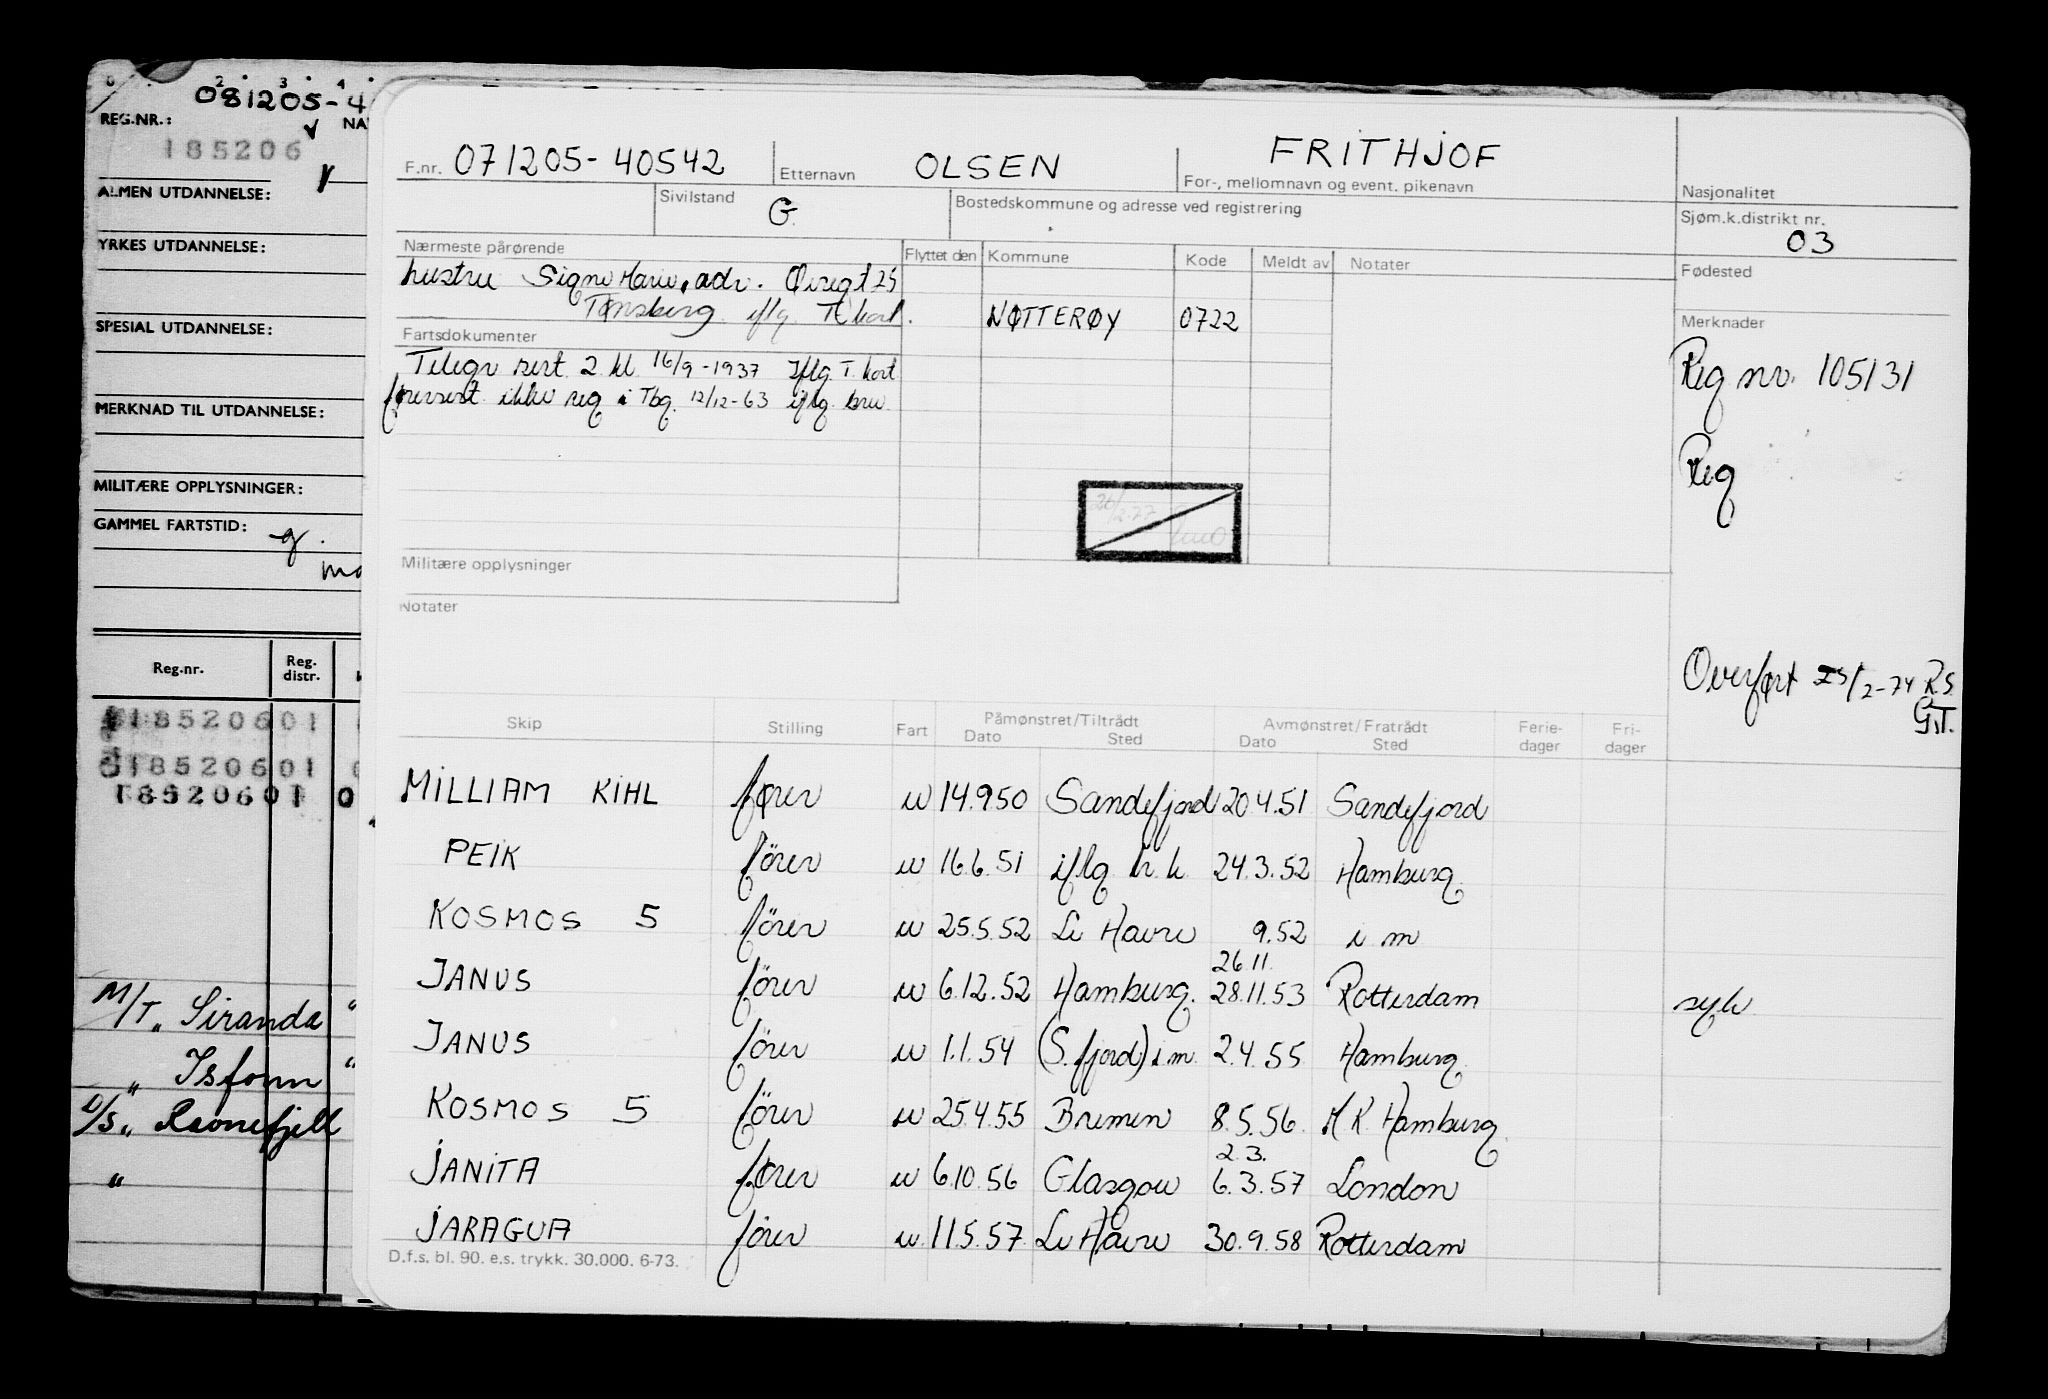 081205-4
REG.NR.:
NA
185206
ALMEN UTDANNELSE:
YRKES UTDANNELSE:
SPESIAL UTDANNELSE:
MERKNAD TIL UTDANNELSE:
MILITÆRE OPPLYSNINGER:
GAMMEL FARTSTID:
Reg.nr. Reg. distr.
18520601
18520601
18520601 0
M/T „ Siranda "
„ Isfonn "
D/S „ Ravnefjell
"
F.nr. 071205-40542 Etternavn OLSEN FRITHJOF
For-, mellomnavn og event. pikenavn
Nasjonalitet
Sivilstand G. Bostedskommune og adresse ved registrering
Sjøm.k.distrikt nr.
03
Nærmeste pårørende Flyttet den Kommune Kode Meldt av Notater
Fødested
hustru Signe Marie, adr.
Tønsberg iflg. T kort. NØTTERØY 0722
Merknader
Fartsdokumenter
Telegr sert. 2 kl. 16/9-1937 Iflg. T. kort
førersert. ikke reg i Tbg. 12/12-63 iflg. brev.
Reg nr. 105131
Reg
Militære opplysninger
Notater
Overført 25/2-74 R.S.
G.T.
Skip Stilling Fart Påmønstret/Tiltrådt Avmønstret/Fratrådt Ferie- Fri-
Dato Sted Dato Sted dager dager
MILLIAM KIHL fører u 14.9.50 Sandefjord 20.4.51 Sandefjord
PEIK förer u 16.6.51 iflg h.k. 24.3.52 Hamburg.
KOSMOS 5 förer u 25.5.52 Le Havre 9.52 i m
26.11.
JANUS förer u 6.12.52 Hamburg. 28.11.53 Rotterdam syk
JANUS förer u 1.1.54 (S.fjord) i.m. 2.4.55 Hamburg.
KOSMOS 5 förer u 25.4.55 Bremen 8.5.56. M K. Hamburg.
2.3.
JANITA fører u 6.10.56 Glasgow 6.3.57 London
JARAGUA förer u. 11.5.57. Le Havre 30.9.58 Rotterdam
D.f.s. bl. 90. e.s. trykk. 30.000. 6-73.